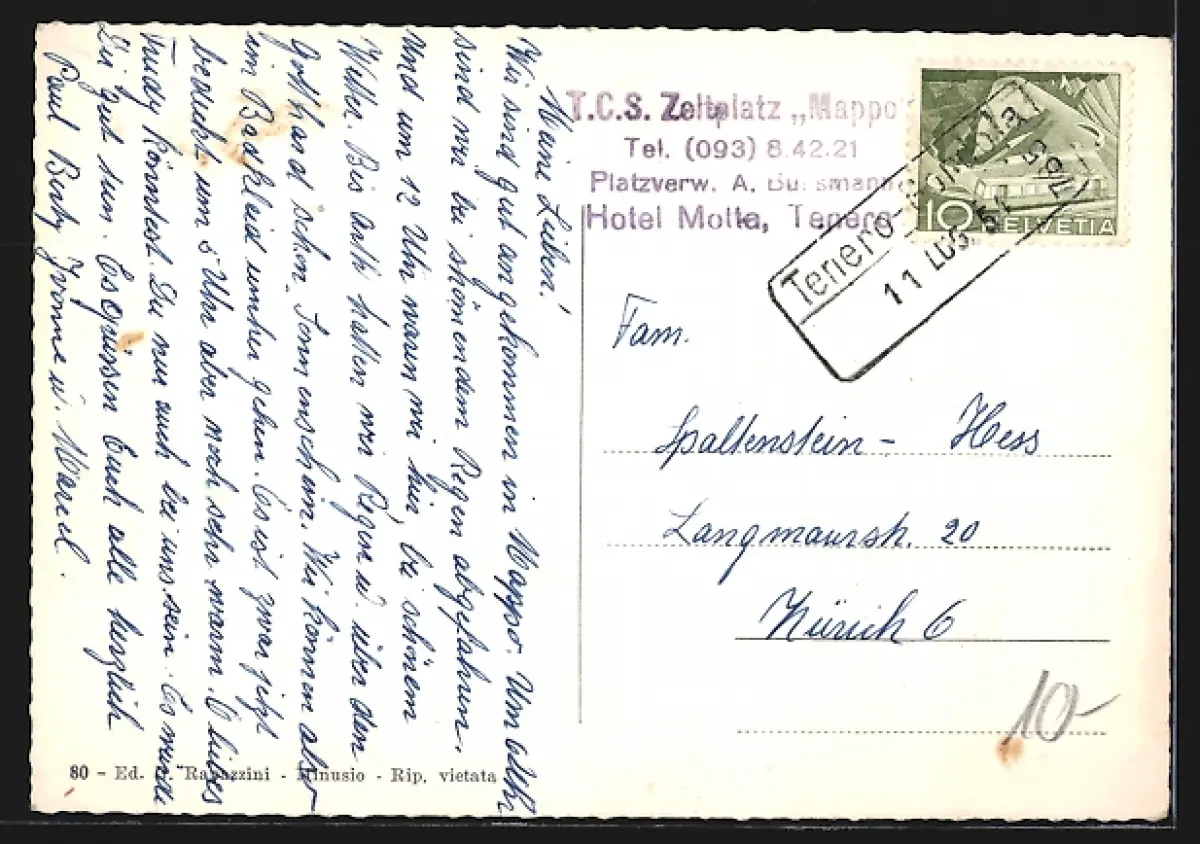 Meine Lieben!
Wir sind gut angekommen in Mappo. Um Uhr
sind wir bei strömendem Regen abgefahren.
und um 12 Uhr waren wir hier, bei schönem
Wetter. Bis hatten wir Regen u. über den
Gotthard schon Sonnenschein. Wir können also
im Badkleid umher gehen. Es ist zwar jetzt
bewölkt, um 5 Uhr aber noch sehr warm. O liebes
Trudy könntest Du nur auch bei uns sein. Es würde
Dir gut tun. Es grüssen Euch alle herzlich
Paul Berty Yvonne u. Marcel.
80 - Ed. Rapazzini - Minusio - Rip. vietata
T.C.S. Zeltplatz „Mappo“
Tel. (093) 8.42.21
Platzverw. A.
Hotel Motta, Tenero
10 HELVETIA
Tenero
11 LUG 51
Fam.
Spaltenstein - Hess
Langmaurstr. 20
Zürich 6
10-